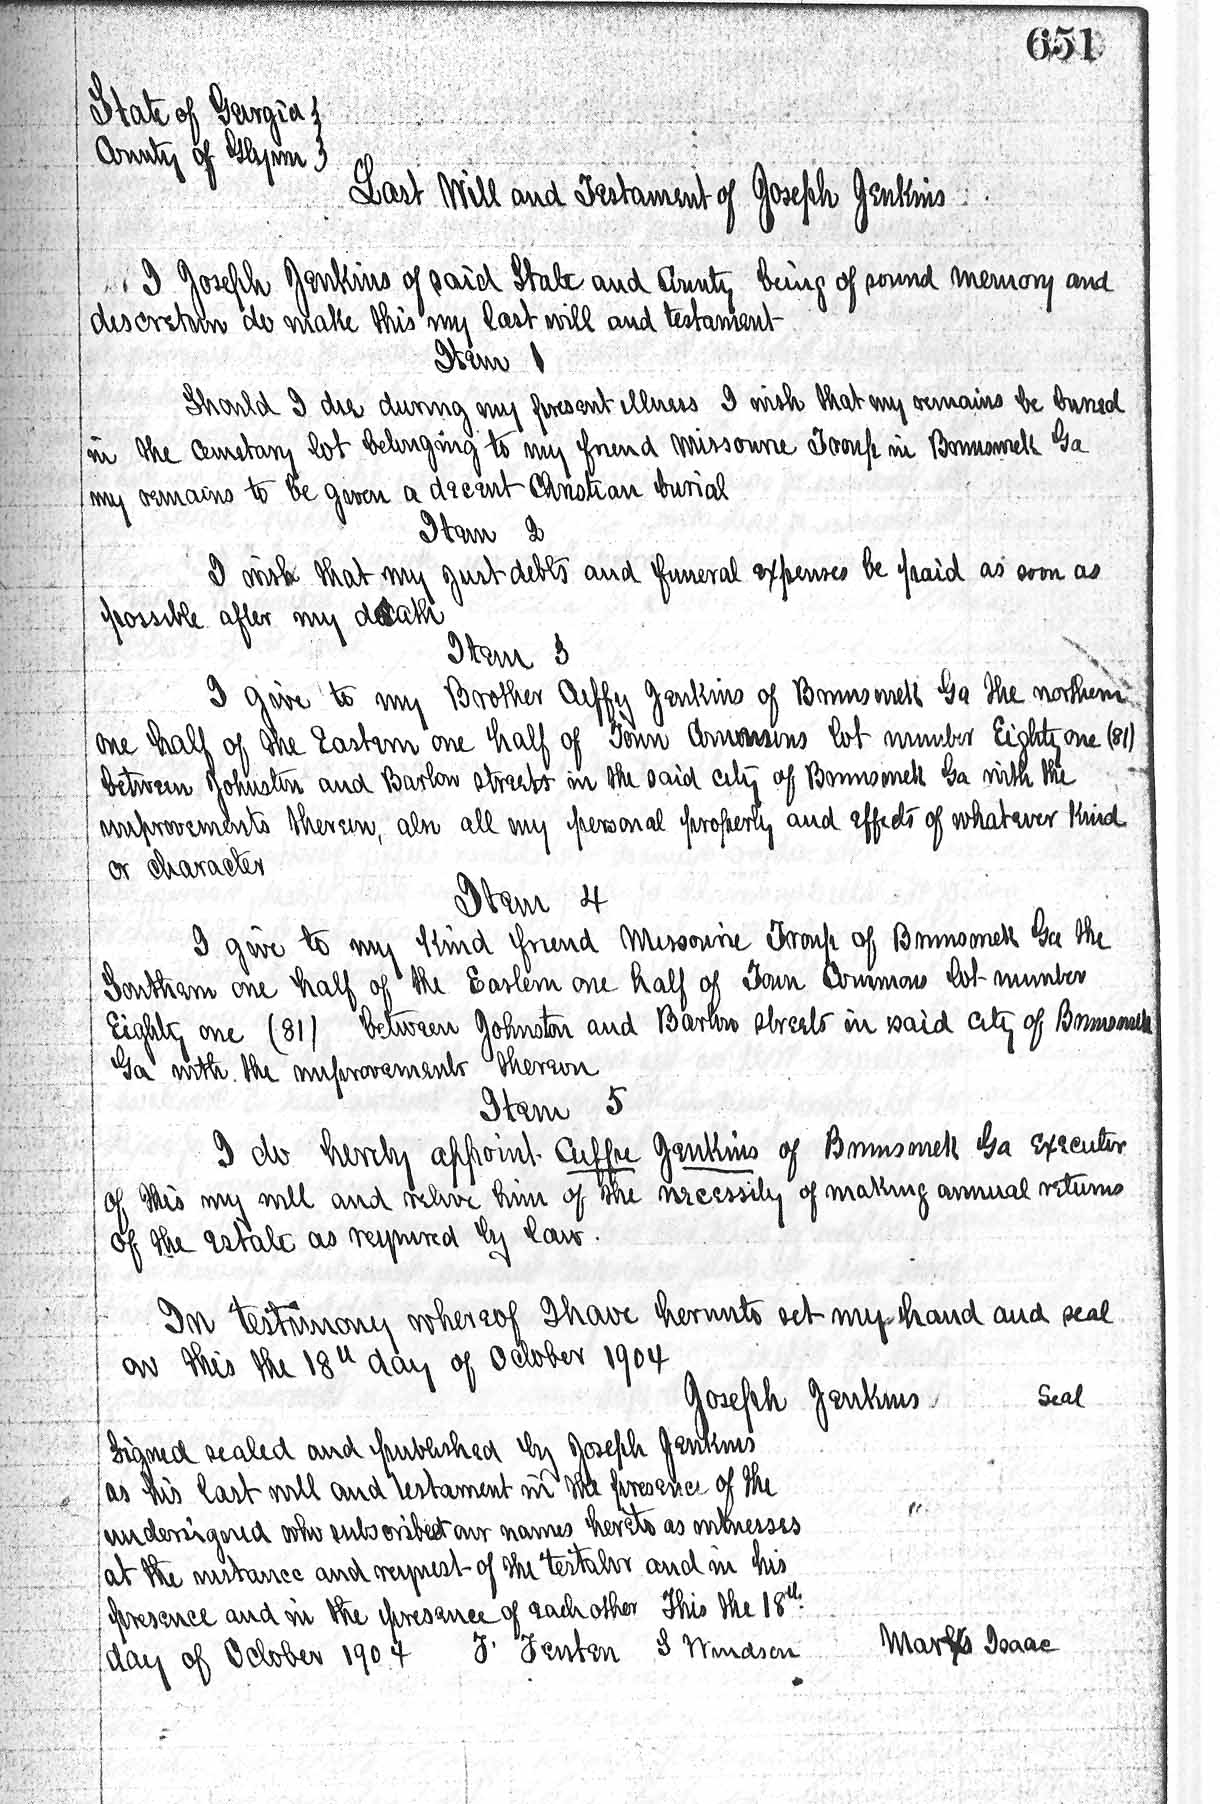 651
State of Georgia }
County of Glynn }
Last Will and Testament of Joseph Jenkins
I Joseph Jenkins of said State and County being of sound memory and
discretion do make this my last will and testament
Item 1
Should I die during my present illness I wish that my remains be buried
in the Cemetary lot belonging to my friend Missourie Troup in Brunswick Ga
my remains to be given a decent Christian burial
Item 2
I wish that my just debts and funeral expenses be paid as soon as
possible after my death
Item 3
I give to my Brother Cuffy Jenkins of Brunswick Ga the northern
one half of the Eastern one half of Town Commons lot number Eighty one (81)
between Johnston and Barlow streets in the said city of Brunswick Ga with the
improvements therein, also all my personal property and effects of whatever kind
or character
Item 4
I give to my kind friend Missourie Troup of Brunswick Ga the
Southern one half of the Eastern one half of Town Commons lot number
Eighty one (81) between Johnston and Barlow streets in said city of Brunswick
Ga with the improvements thereon
Item 5
I do hereby appoint Cuffie Jenkins of Brunswick Ga Executor
of this my will and relive him of the necessity of making annual returns
of the estate as required by law.
In testimony whereof I have herunto set my hand and seal
on this the 18th day of October 1904
Joseph Jenkins Seal
Signed sealed and published by Joseph Jenkins
as his last will and testament in the presence of the
undersigned who subscribed our names hereto as witnesses
at the instance and request of the testator and in his
presence and in the presence of each other This the 18th
day of October 1904 J. Fenten S Windson Marks Isaac